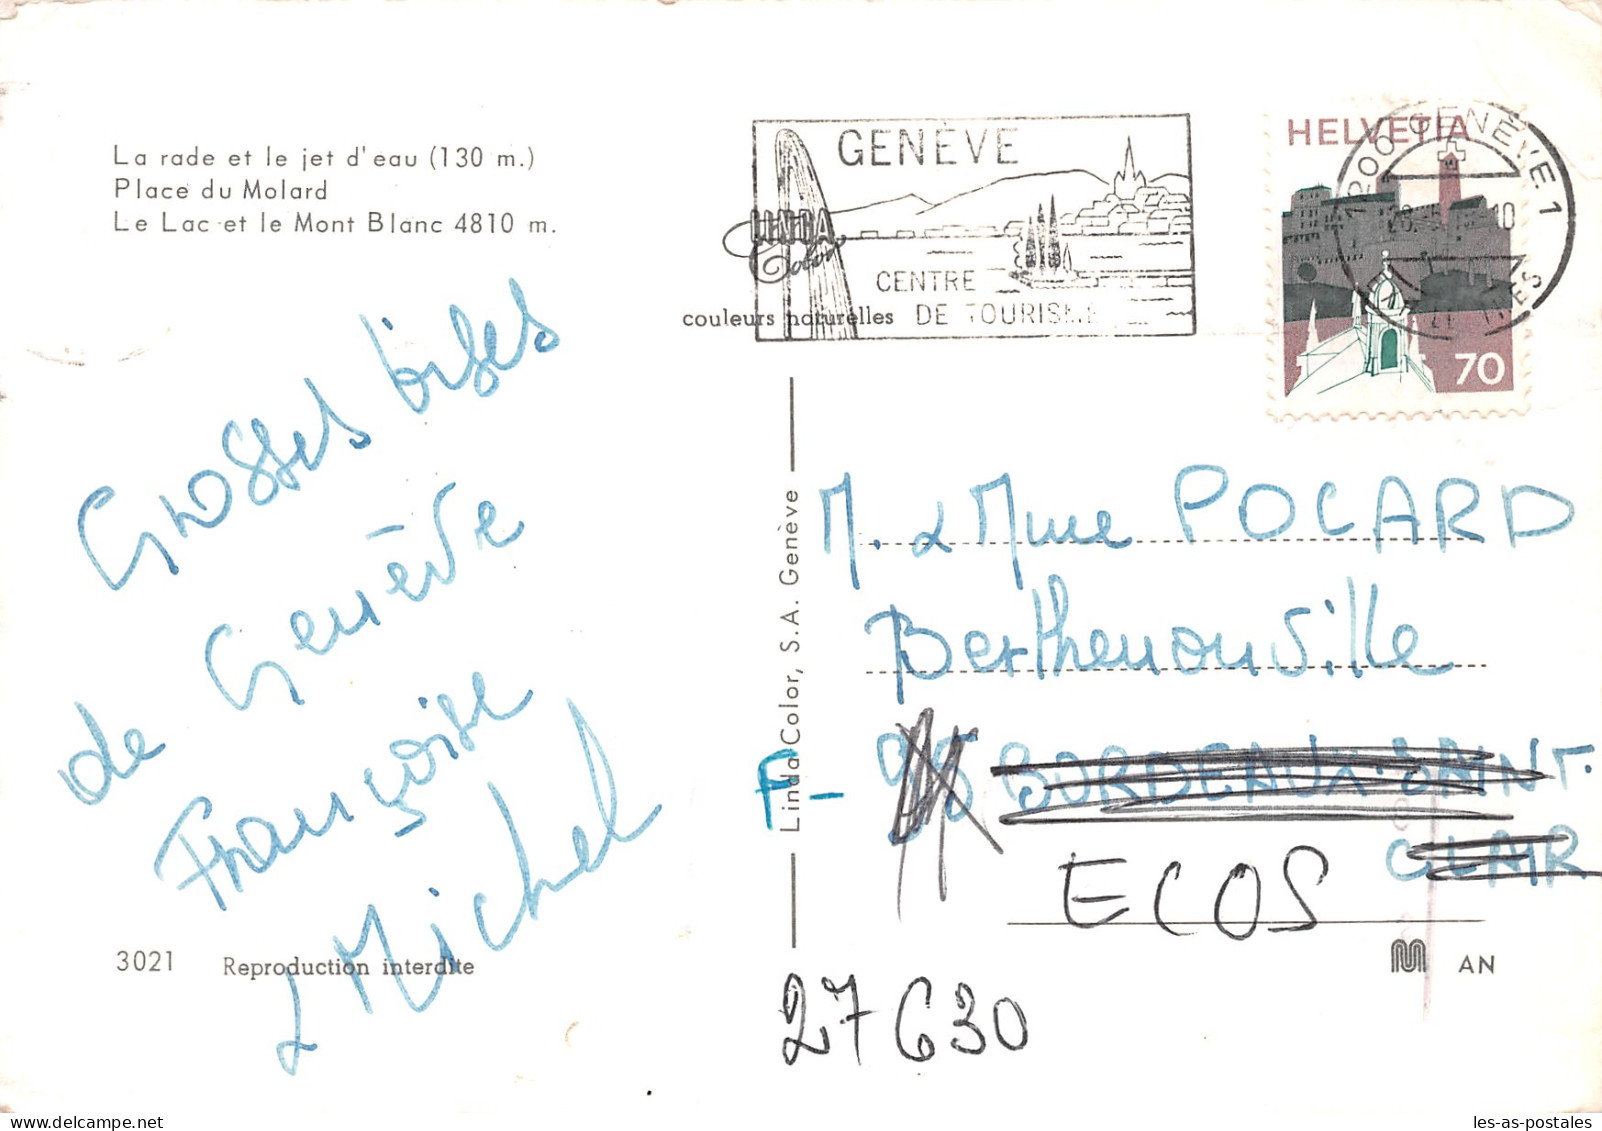 La rade et le jet d'eau (130 m.)
Place du Molard
Le Lac et le Mont Blanc 4810 m.
Grosses bises
de Genève
Françoise
& Michel
3021 Reproduction interdite
GENÈVE
CENTRE
DE TOURISME
LINDA
Color
couleurs naturelles
HELVETIA
70
1200 GENÈVE 1
Linda Color, S.A. Genève
M. & Mme POCARD
Berthenonville
F - 95 BORDEAUX-SAINT-
CLAIR
ECOS
27630
AN
les-as-postales